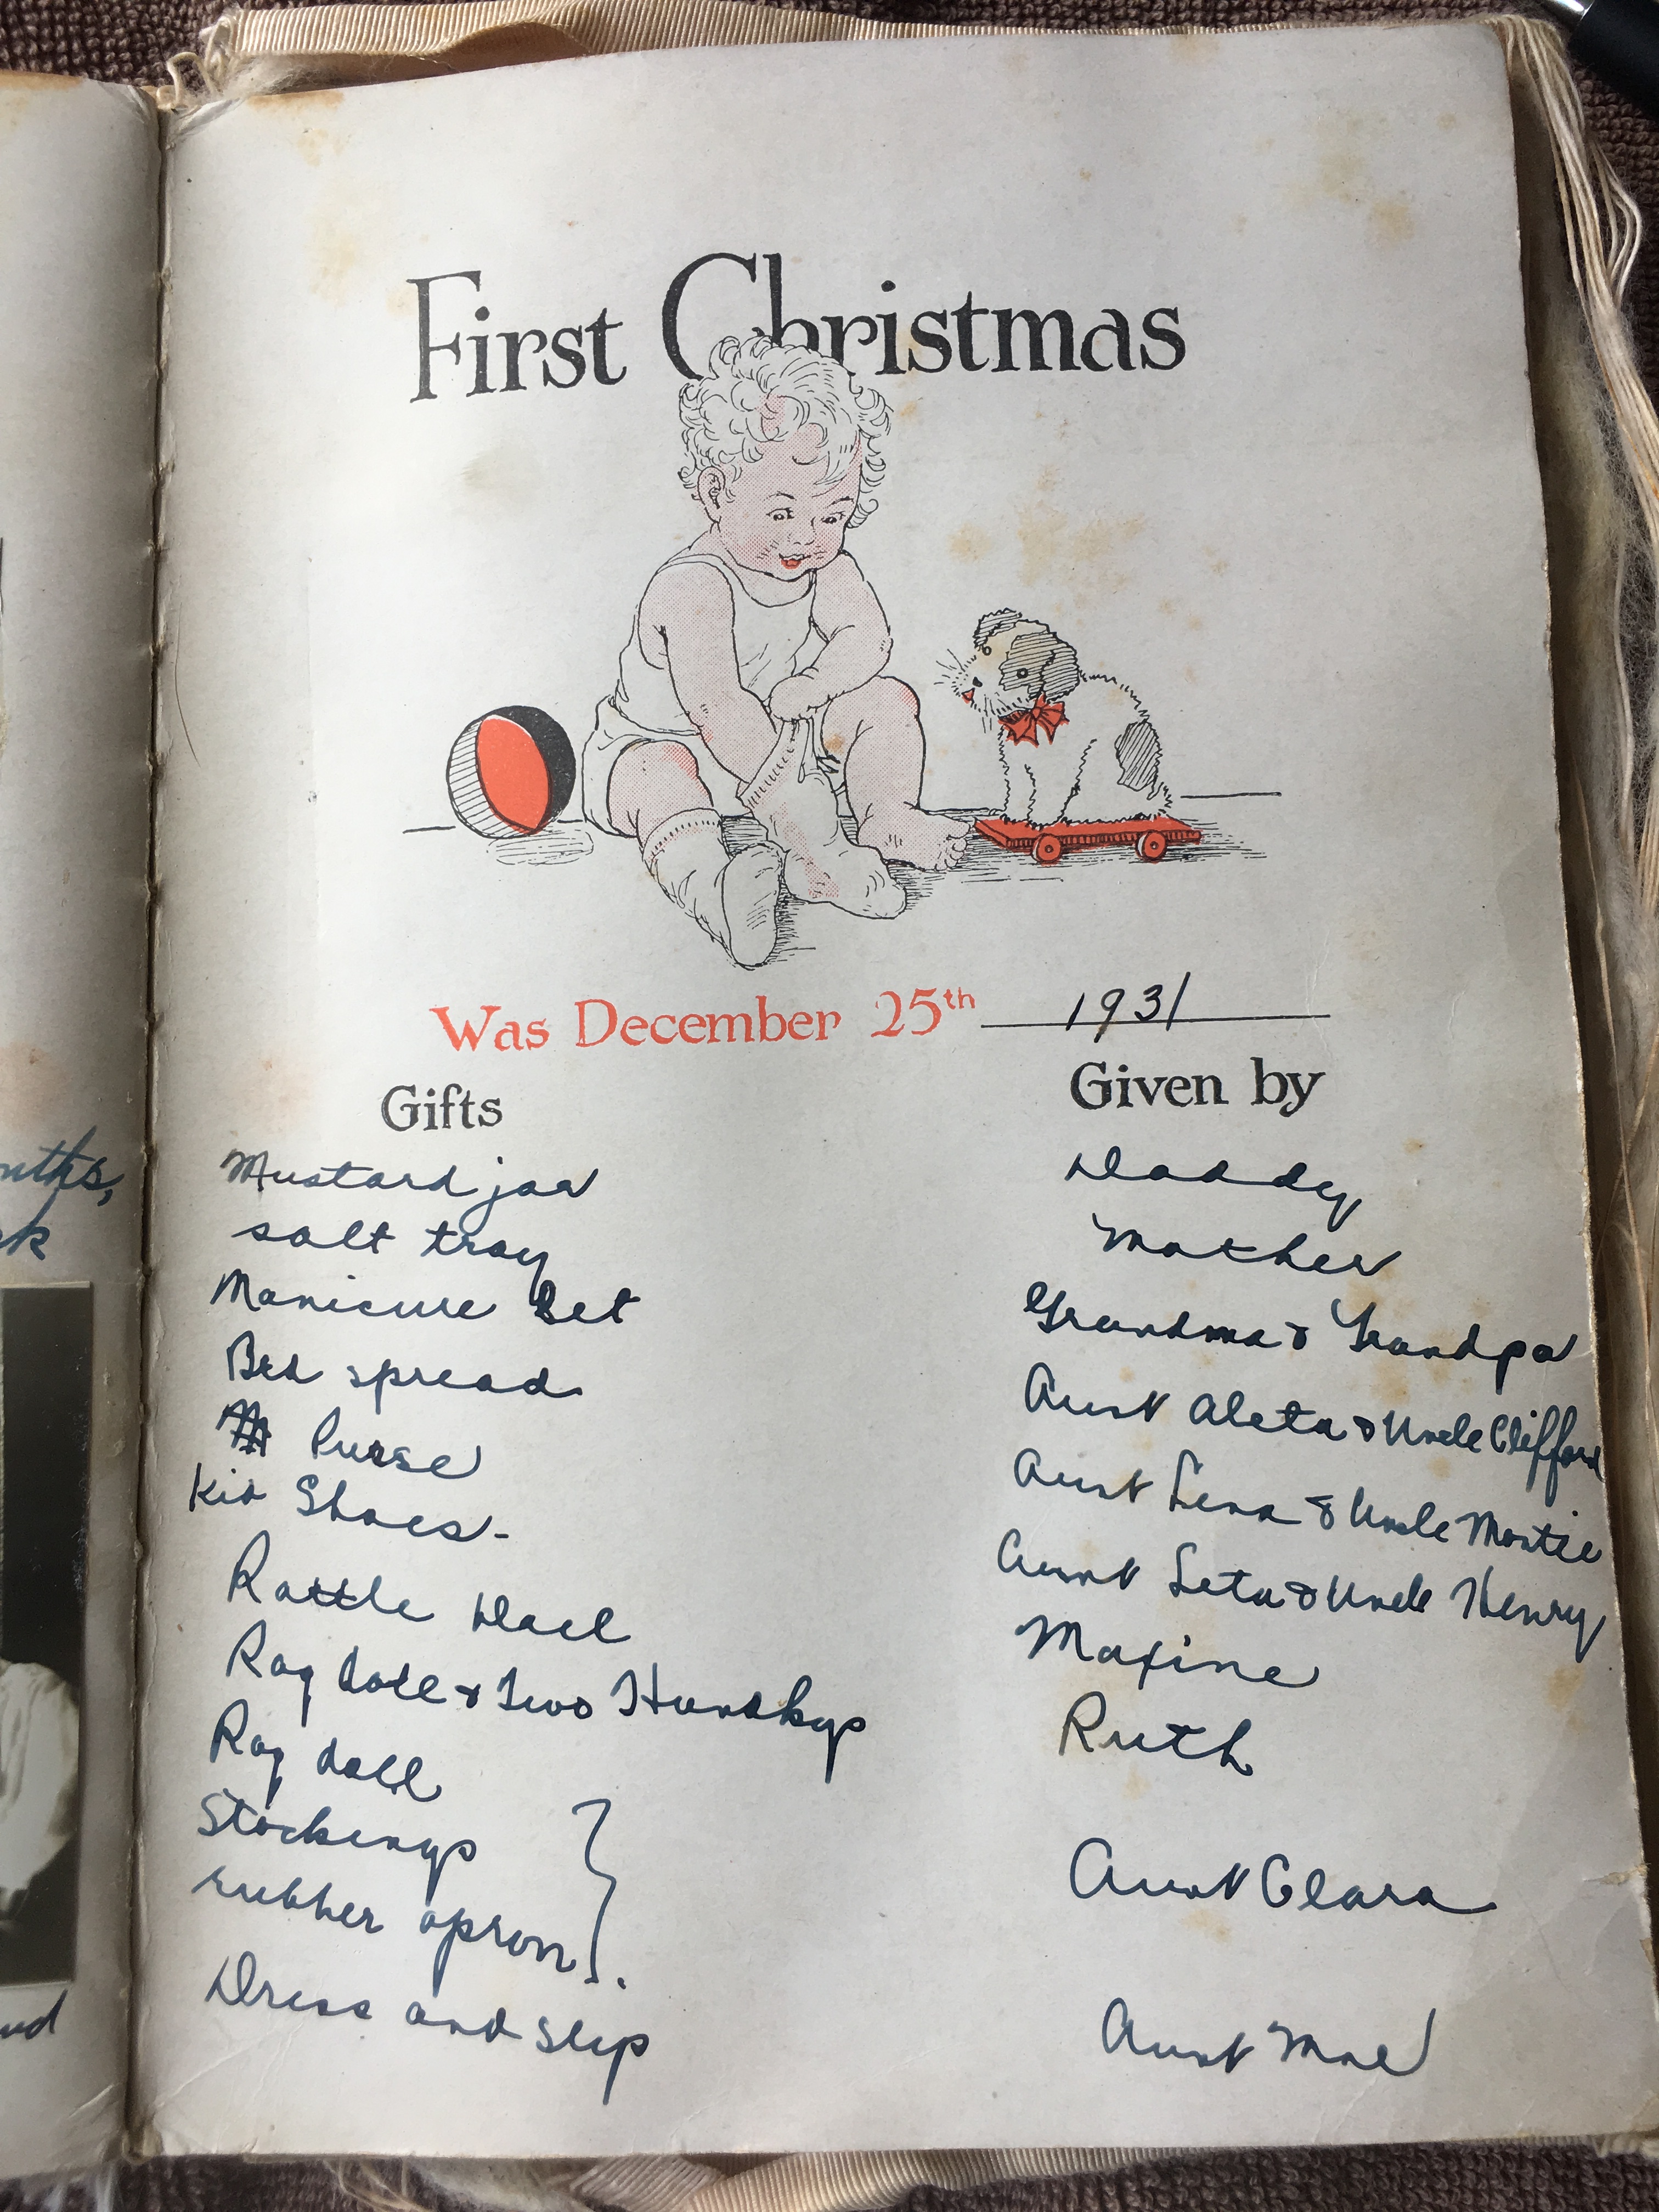 First Christmas
Was December 25th 1931
Gifts Given by
Mustard jar Daddy
salt tray Mother
Manicure Set Grandma & Grandpa
Bed spread Aunt Aleta & Uncle Clifford
Purse Aunt Lena & Uncle Mortie
Kid Shoes- Aunt Leta & Uncle Henry
Rattle Doll Maxine
Rag doll & Two Hundkys Ruth
Rag doll
Stockings
rubber apron. Aunt Clara
Dress and slip Aunt Mae